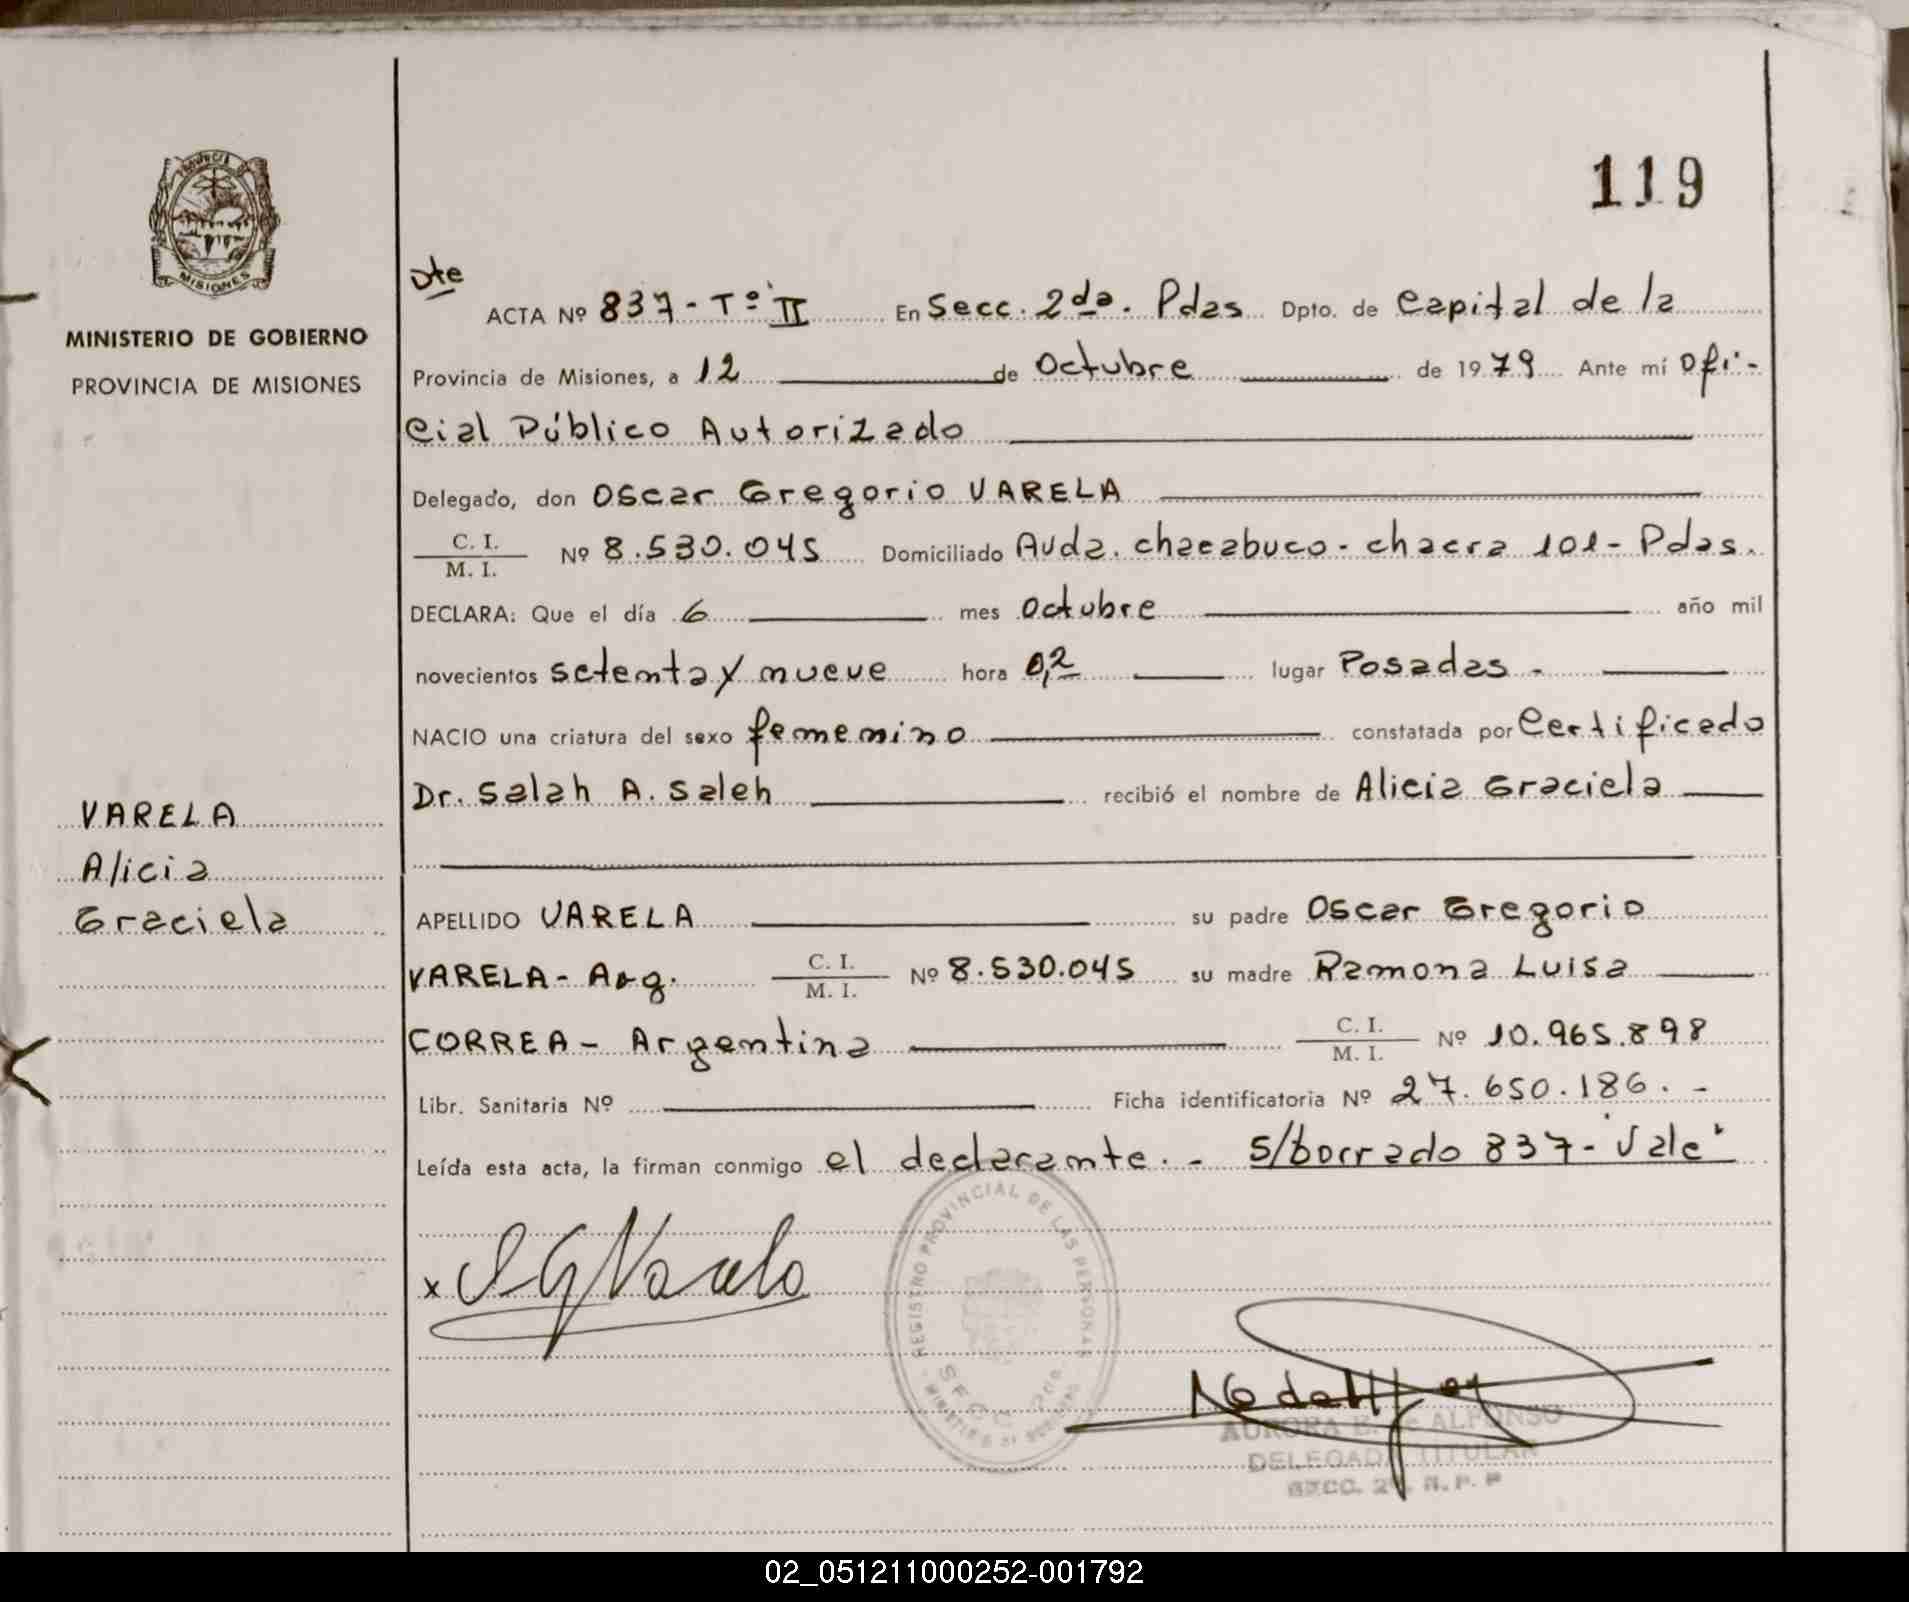 119
PROVINCIA DE
MISIONES
MINISTERIO DE GOBIERNO
PROVINCIA DE MISIONES
VARELA
Alicia
Graciela
Dte
ACTA Nº 837-Tº II En Secc. 2da. Pdas Dpto. de Capital de la
Provincia de Misiones, a 12 de Octubre de 1979 Ante mí Ofi-
cial Público Autorizado
Delegado, don Oscar Gregorio VARELA
C. I. / M. I. Nº 8.530.045 Domiciliado Avda. chacabuco- chacra 101- Pdas.
DECLARA: Que el día 6 mes Octubre año mil
novecientos setenta y nueve hora 0,2 lugar Posadas -
NACIO una criatura del sexo femenino constatada por Certificado
Dr. Salah A. Saleh recibió el nombre de Alicia Graciela
APELLIDO VARELA su padre Oscar Gregorio
VARELA- Arg. C. I. / M. I. Nº 8.530.045 su madre Ramona Luisa
CORREA- Argentina C. I. / M. I. Nº 10.965.898
Libr. Sanitaria Nº Ficha identificatoria Nº 27.650.186. -
Leída esta acta, la firman conmigo el declarante. - S/borrado 837- Vale
x O G Varela
REGISTRO PROVINCIAL DE LAS PERSONAS
SECC. 2da.
AURORA B. de ALFONSO
DELEGADA TITULAR
SECC. 2ª. R. P. P
02_051211000252-001792